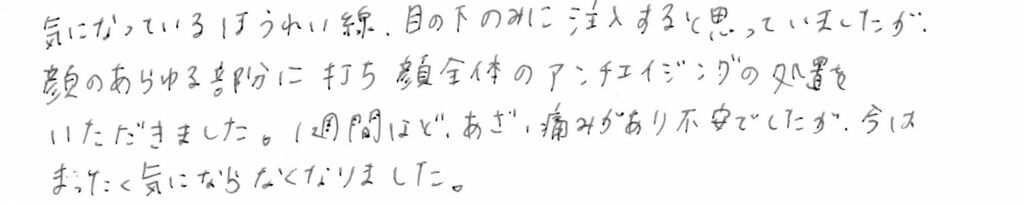 気になっているほうれい線、目の下のみに注入すると思っていましたが、
顔のあらゆる部分に打ち顔全体のアンチエイジングの処置を
いただきました。1週間ほど、あざ、痛みがあり不安でしたが、今は
まったく気にならなくなりました。